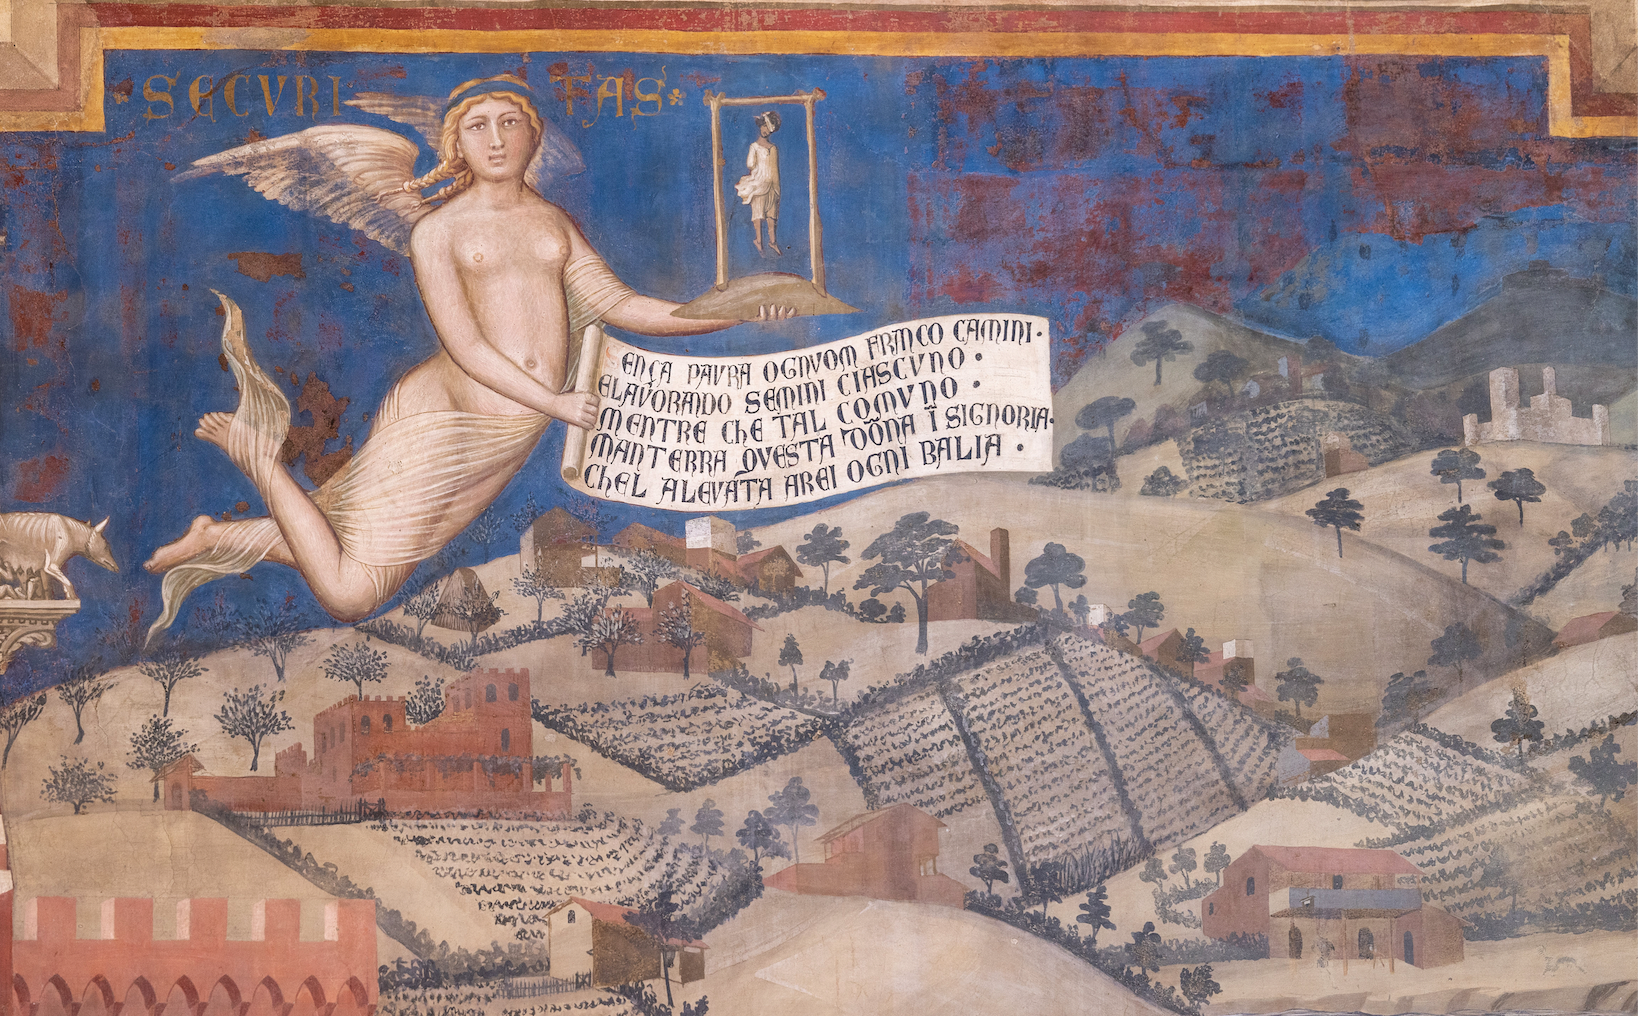 SECVRITAS
ENÇA PAVRA OGNVOM FRANCO CAMINI·
ELAVORANDO SEMINI CIASCVNO·
MENTRE CHE TAL COMVNO·
MANTERRA QVESTA DÕNA Ĩ SIGNORIA·
CHEL ALEVATA AREI OGNI BALIA·